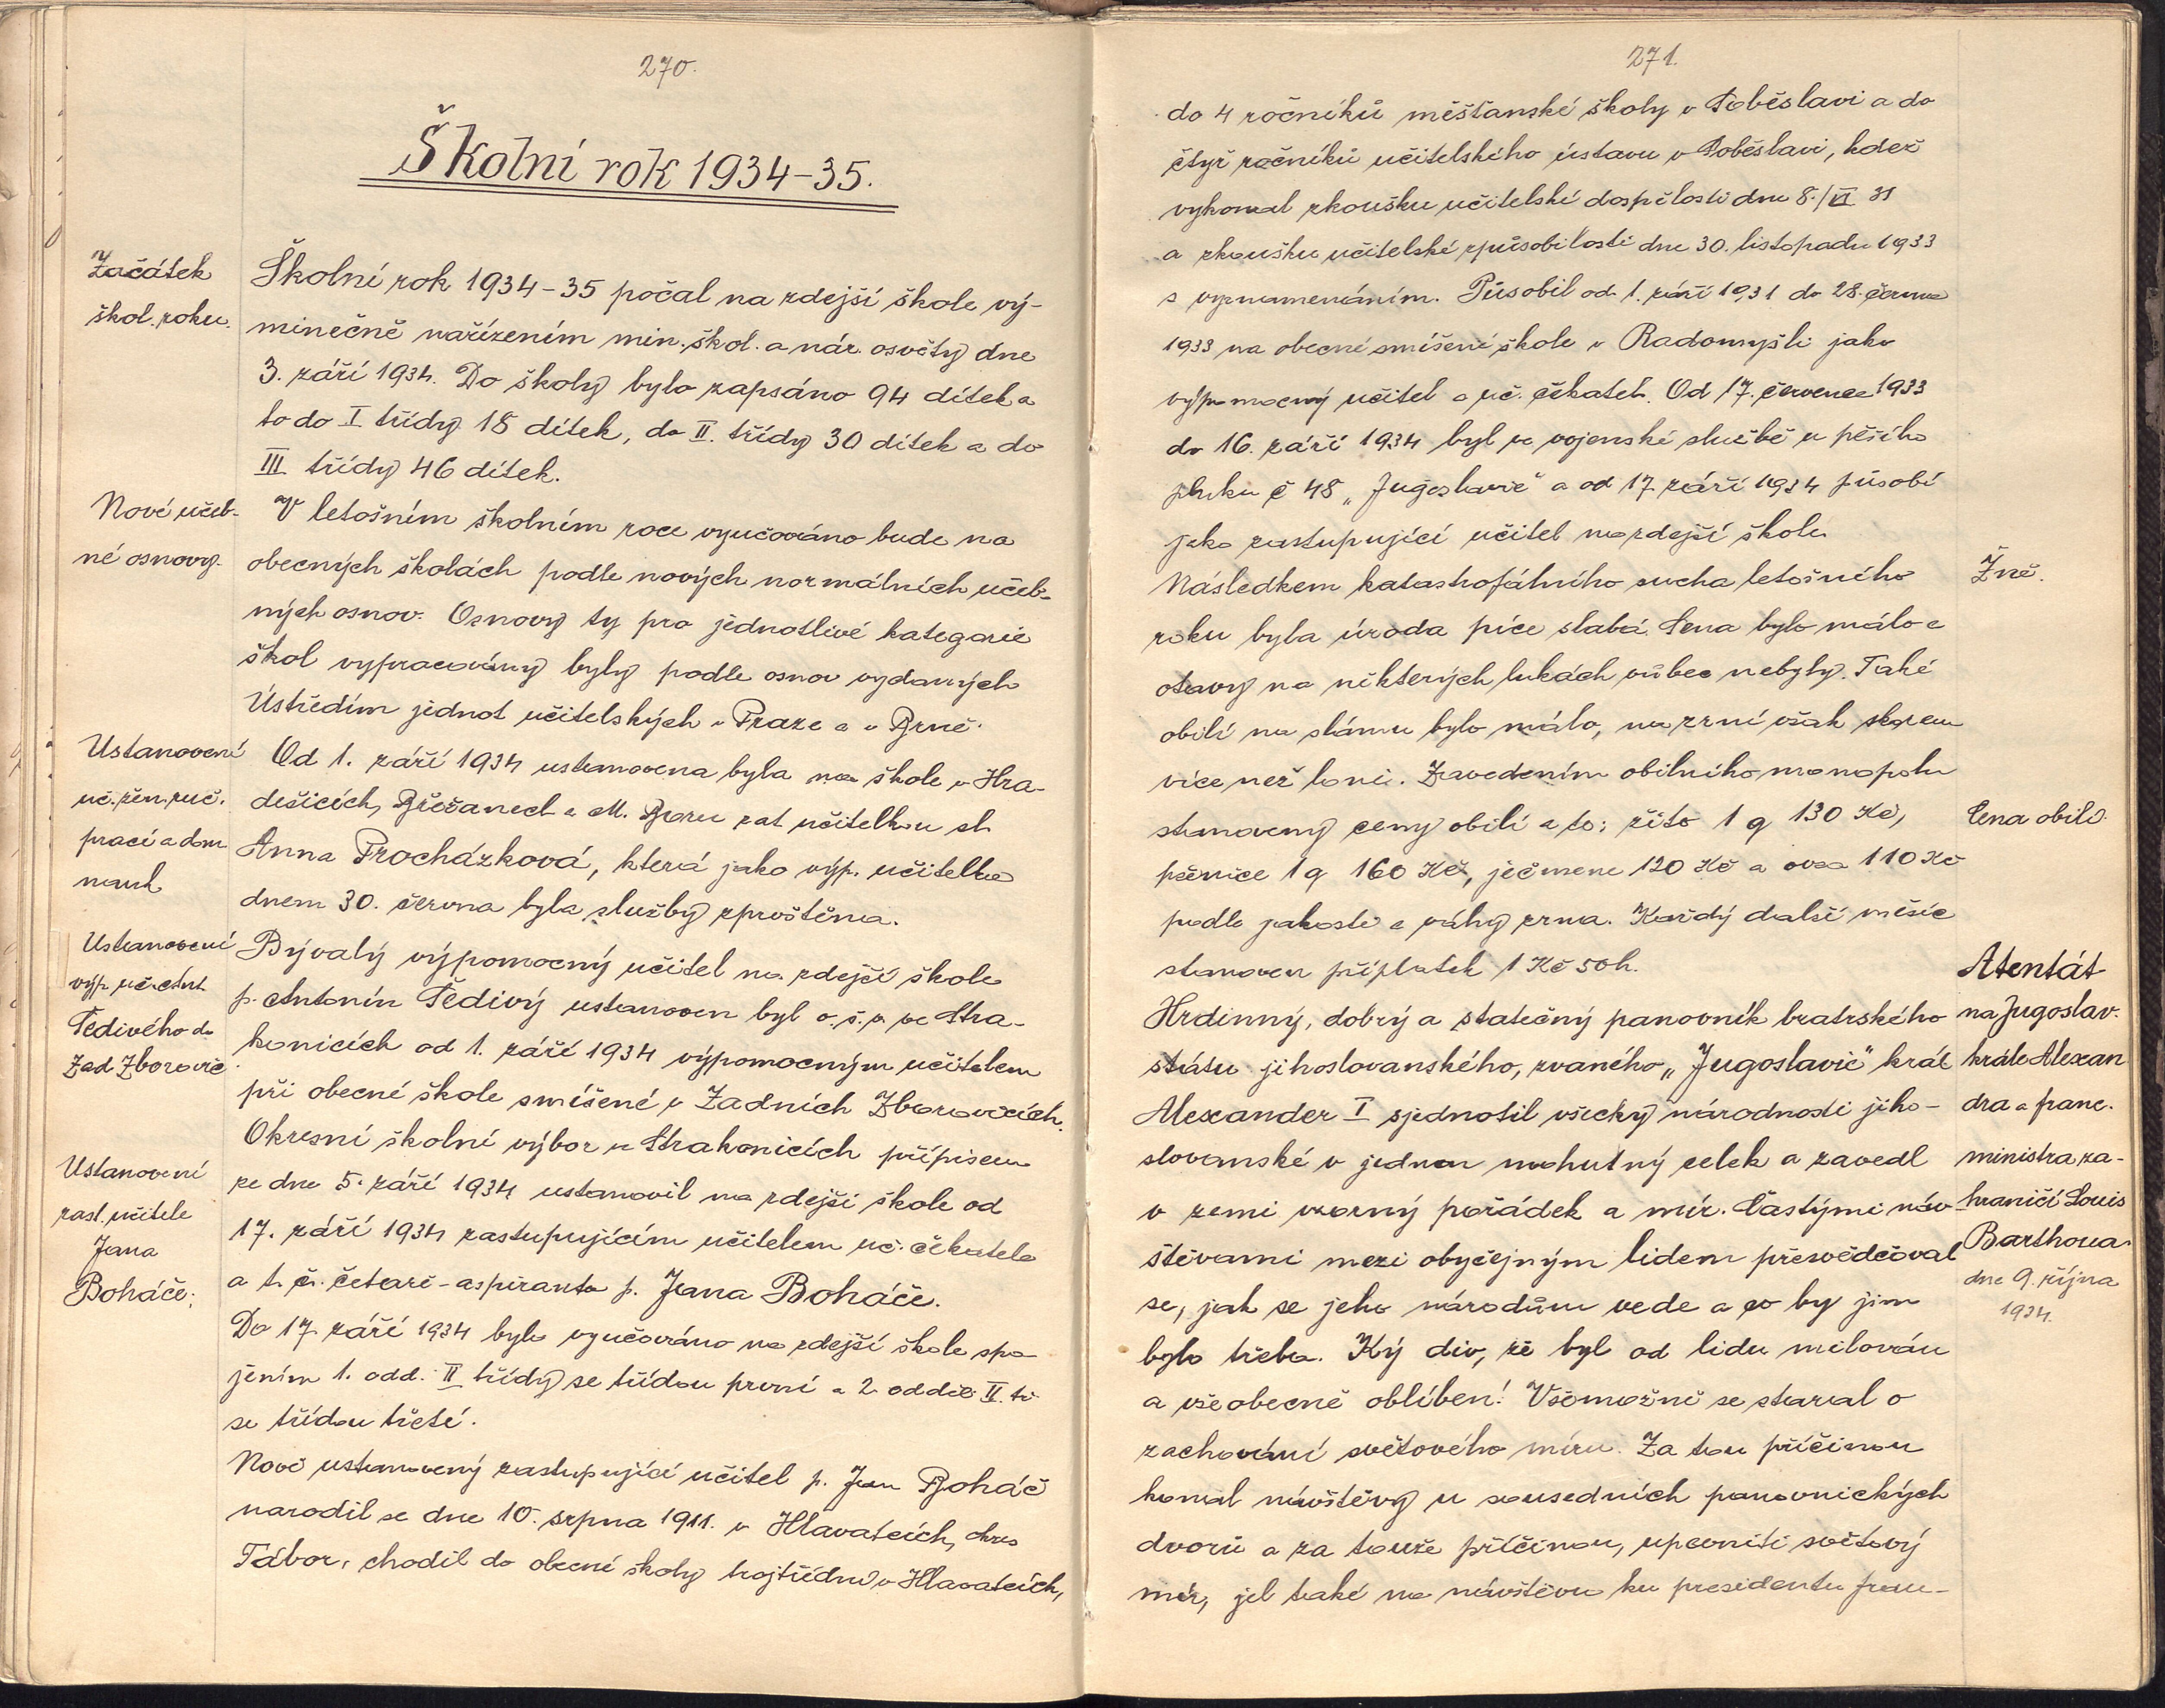 270.
Školní rok 1934-35.
Začátek
škol. roku.
Školní rok 1934-35 počal na zdejší škole vý-
minečně nařízením min. škol. a nár. osvěty dne
3. září 1934. Do školy bylo zapsáno 94 dítek a
to do I třídy 18 dítek, do II. třídy 30 dítek a do
III třídy 46 dítek.
Nové učeb-
né osnovy.
V letošním školním roce vyučováno bude na
obecných školách podle nových normálních učeb-
ných osnov. Osnovy ty pro jednotlivé kategorie
škol vypracovány byly podle osnov vydaných
Ústředím jednot učitelských v Praze a v Brně.
Ustanovení
uč. žen. ruč.
prací a dom.
nauk
Od 1. září 1934 ustanovena byla na škole v Hra-
dešicích, Břežanech a M. Boru zat. učitelkou sl.
Anna Procházková, která jako výp. učitelka
dnem 30. června byla služby zproštěna.
Ustanovení
výp. uč. Ant.
Šedivého do
Zad Zborovic
Bývalý výpomocný učitel na zdejší škole
p. Antonín Šedivý ustanoven byl o. š. v. ve Stra-
konicích od 1. září 1934 výpomocným učitelem
při obecné škole smíšené v Zadních Zborovicích.
Ustanovení
zast. učitele
Jana
Boháče.
Okresní školní výbor v Strakonicích přípisem
ze dne 5. září 1934 ustanovil na zdejší škole od
17. září 1934 zastupujícím učitelem uč. čekatele
a t. č. četaře-aspiranta p. Jana Boháče.
Do 17. září 1934 bylo vyučováno na zdejší škole spo-
jením 1. odd. II třídy se třídou první a 2. odděl. II. tř.
se třídou třetí.
Nově ustanovený zastupující učitel p. Jan Boháč
narodil se dne 10. srpna 1911. v Hlavatcích, okres
Tábor, chodil do obecné školy trojtřídní v Hlavatcích,
271.
do 4 ročníků měšťanské školy v Soběslavi a do
čtyř ročníků učitelského ústavu v Soběslavi, kdež
vykonal zkoušku učitelské dospělosti dne 8./VI. 31
a zkoušku učitelské způsobilosti dne 30. listopadu 1933
s vyznamenáním. Působil od 1. září 1931 do 28. června
1933 na obecné smíšené škole v Radomyšli jako
výpomocný učitel a uč. čekatel. Od 17. července 1933
do 16. září 1934 byl ve vojenské službě u pěšího
pluku č 48 „Jugoslavie" a od 17. září 1934 působí
jako zastupující učitel na zdejší škole.
Žně.
Následkem katastrofálního sucha letošního
roku byla úroda píce slabá. Sena bylo málo a
otavy na některých lukách vůbec nebyly. Také
obilí na slámu bylo málo, na zrní však skorem
více než loni. Zavedením obilního monopolu
Cena obilí.
stanoveny ceny obilí a to: žito 1 q 130 Kč,
pšenice 1 q 160 Kč, ječmene 120 Kč a ovsa 110 Kč
podle jakosti a váhy zrna. Každý další měsíc
stanoven příplatek 1 Kč 50 h.
Atentát
na Jugoslav.
krále Alexan
dra a franc.
ministra za-
hraničí Louis
Barthoua
dne 9. října
1934.
Hrdinný, dobrý a statečný panovník bratrského
státu jihoslovanského, zvaného „Jugoslavie" král
Alexander I sjednotil všecky národnosti jiho-
slovanské v jeden mohutný celek a zavedl
v zemi vzorný pořádek a mír. Častými náv-
štěvami mezi obyčejným lidem přesvědčoval
se, jak se jeho národům vede a co by jim
bylo třeba. Ký div, že byl od lidu milován
a všeobecně oblíben! Všemožně se staral o
zachování světového míru. Za tou příčinou
konal návštěvy u sousedních panovnických
dvorů a za touže příčinou, upevniti světový
mír, jel také na návštěvu ku presidentu fran-